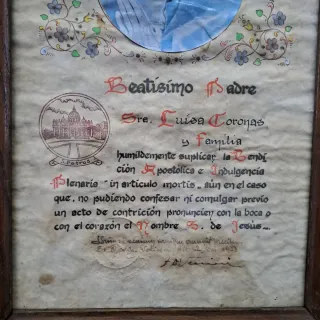 Beatísimo Padre
Sra. Luisa Coronas
y Familia
humildemente suplica la Bendi
ción Apostólica e Indulgencia
Plenaria in artículo mortis aún en el caso
que, no pudiendo confesar ni comulgar previo
un acto de contrición pronuncien con la boca o
con el corazón el Nombre S. de Jesús
S. Petrus